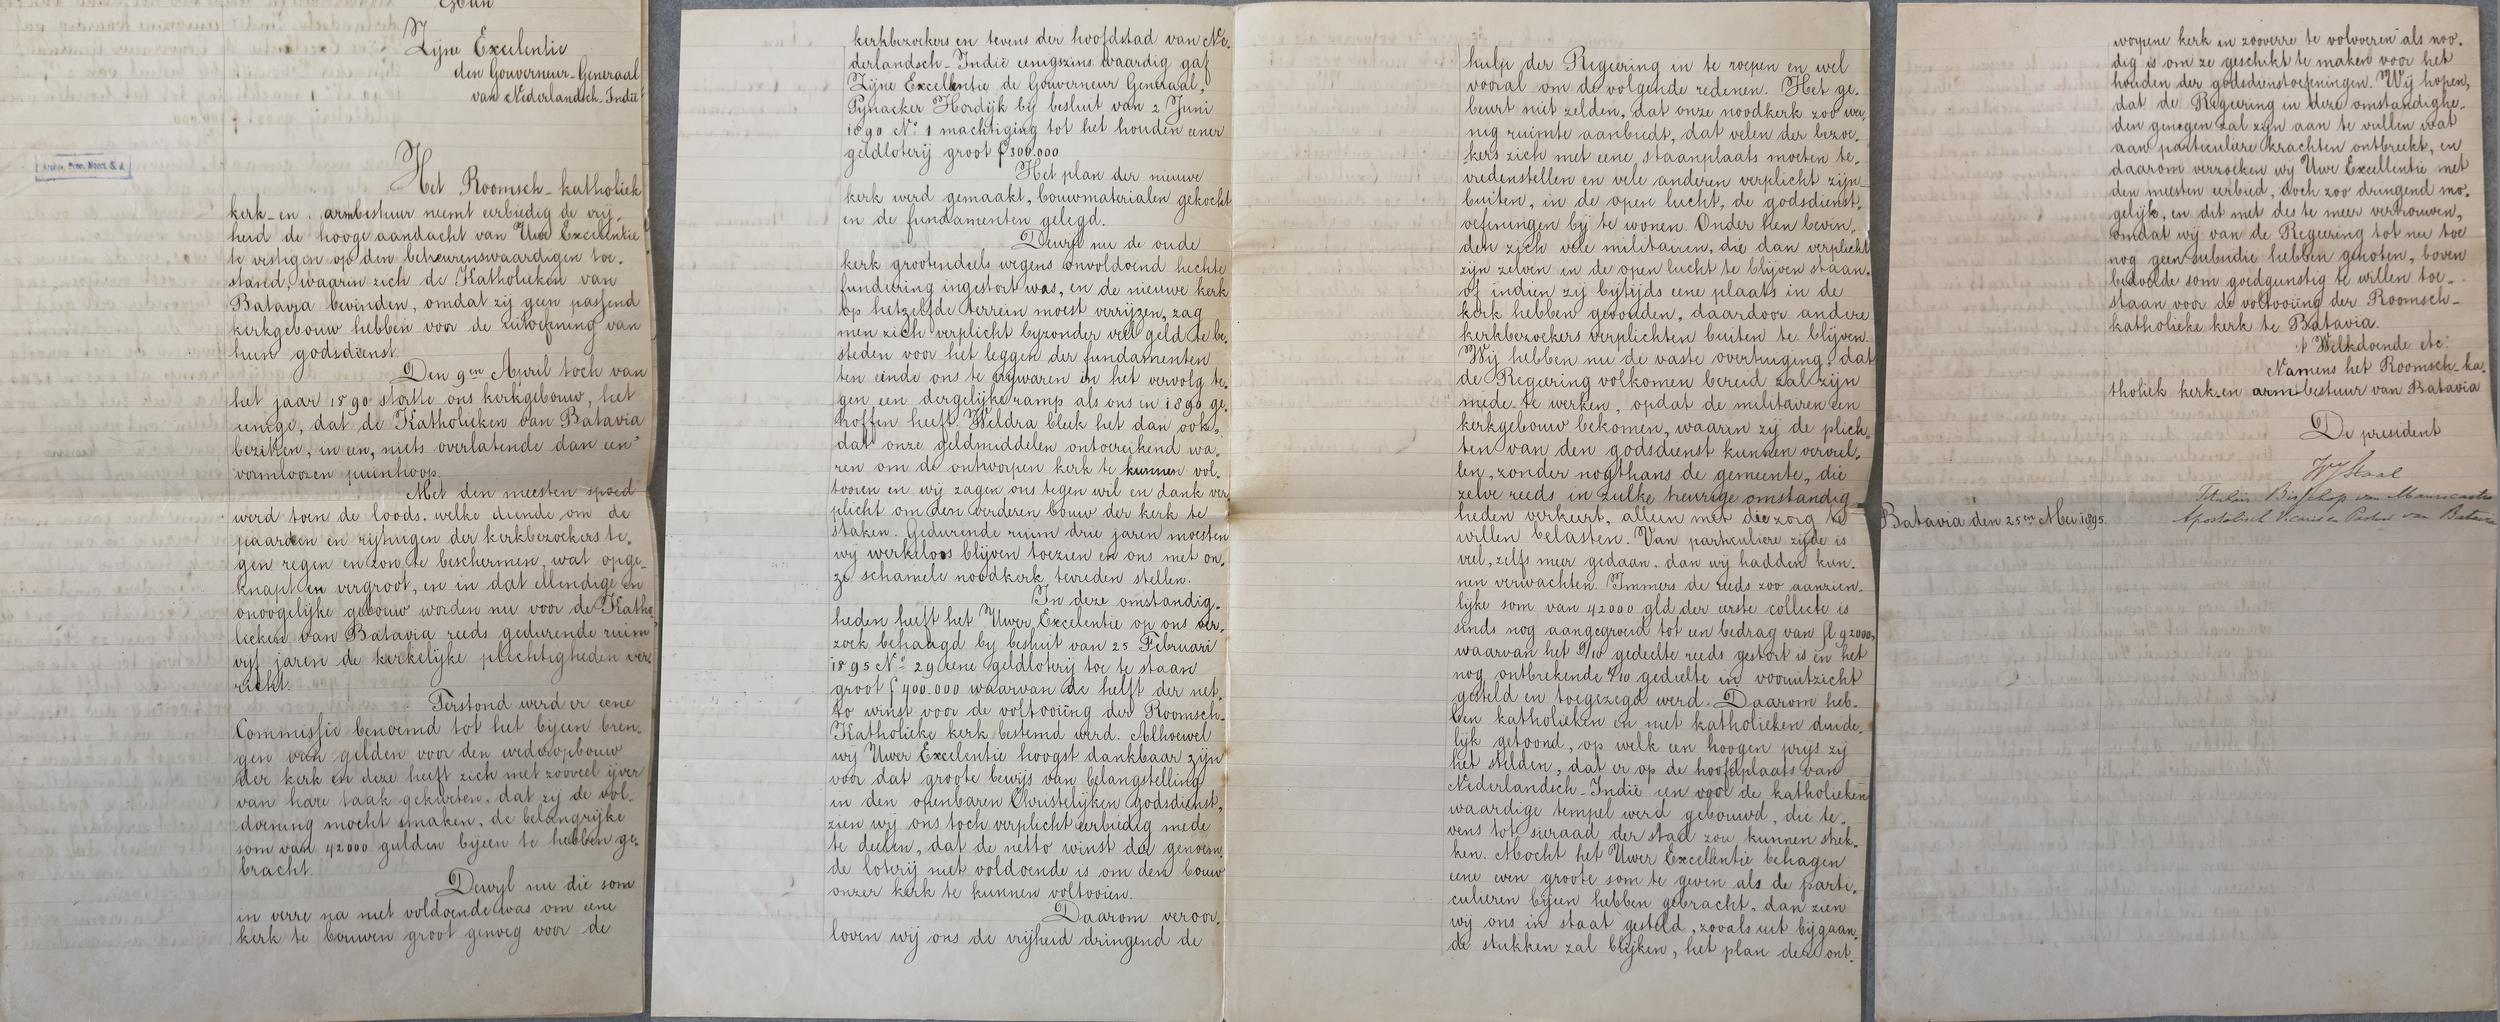 Aan
Zijne Excelentie
den Gouverneur-Generaal
van Nederlandsch-Indië
Het Roomsch-katholiek
kerk-en armbestuur neemt eerbiedig de vrij-
heid de hooge aandacht van Uwe Excelentie
te vestigen op den betreurenswaardigen toe-
stand, waarin zich de Katholieken van
Batavia bevinden, omdat zij geen passend
kerkgebouw hebben voor de uitoefening van
hun godsdienst.
Den 9en April toch van
het jaar 1890 stortte ons kerkgebouw, het
eenige, dat de Katholieken van Batavia
bezitten, in een, niets overlatende dan een
vormloozen puinhoop.
Met den meesten spoed
werd toen de loods, welke diende om de
paarden en rijtuigen der kerkbezoekers te-
gen regen en zon te beschermen, wat opge-
knapt en vergroot, en in dat ellendige en
onoogelijke gebouw worden nu voor de Katho-
lieken van Batavia reeds gedurende ruim
vijf jaren de kerkelijke plechtigheden ver-
richt.
Terstond werd er eene
Commissie benoemd tot het bijeen bren-
gen van gelden voor den wederopbouw
der kerk en deze heeft zich met zooveel ijver
van hare taak gekweten, dat zij de vol-
doening mocht smaken, de belangrijke
som van 42000 gulden bijeen te hebben ge-
bracht.
Dewijl nu die som
in verre na niet voldoende was om eene
kerk te bouwen groot genoeg voor de
kerkbezoekers en tevens der hoofdstad van Ne-
derlandsch-Indië eenigszins waardig gaf
Zijne Excellentie de Gouverneur Generaal,
Pijnacker Hordijk bij besluit van 2 Juni
1890 No 1 machtiging tot het houden eener
geldloterij groot f 300.000
Het plan der nieuwe
kerk werd gemaakt, bouwmaterialen gekocht
en de fundamenten gelegd.
Dewijl nu de oude
kerk grootendeels wegens onvoldoend hechte
fundeering ingestort was, en de nieuwe kerk
op hetzelfde terrein moest verrijzen, zag
men zich verplicht bijzonder veel geld te be-
steden voor het leggen der fundamenten
ten einde ons te vrijwaren in het vervolg te-
gen een dergelijke ramp als ons in 1890 ge-
troffen heeft. Weldra bleek het dan ook,
dat onze geldmiddelen ontoereikend wa-
ren om de ontworpen kerk te kunnen vol-
tooien en wij zagen ons tegen wil en dank ver
plicht om den verderen bouw der kerk te
staken. Gedurende ruim drie jaren moesten
wij werkeloos blijven toezien en ons met on-
ze schamele noodkerk tevreden stellen.
In deze omstandig-
heden heeft het Uwer Excelentie op ons ver-
zoek behaagd bij besluit van 25 Februari
1895 No 29 eene geldloterij toe te staan
groot f 400.000 waarvan de helft der net-
to winst voor de voltooiïng der Roomsch-
Katholieke kerk bestemd werd. Alhoewel
wij Uwer Excelentie hoogst dankbaar zijn
voor dat groote bewijs van belangstelling
in den openbaren Christelijken godsdienst,
zien wij ons toch verplicht eerbiedig mede
te deelen, dat de netto winst der genoem-
de loterij niet voldoende is om den bouw
onzer kerk te kunnen voltooien.
Daarom veroor-
loven wij ons de vrijheid dringend de
hulp der Regeering in te roepen en wel
vooral om de volgende redenen. Het ge-
beurt niet zelden, dat onze noodkerk zoo wei-
nig ruimte aanbiedt, dat velen der bezoe-
kers zich met eene staanplaats moeten te-
vredenstellen en vele anderen verplicht zijn
buiten, in de open lucht, de godsdienst-
oefeningen bij te wonen. Onder hen bevin-
den zich vele militairen, die dan verplicht
zijn zelven in de open lucht te blijven staan,
of indien zij bijtijds eene plaats in de
kerk hebben gevonden, daardoor andere
kerkbezoekers verplichten buiten te blijven.
Wij hebben nu de vaste overtuiging, dat
de Regeering volkomen bereid zal zijn
mede te werken, opdat de militairen een
kerkgebouw bekomen, waarin zij de plich-
ten van den godsdienst kunnen vervul-
len, zonder nogthans de gemeente, die
zelve reeds in zulke treurige omstandig-
heden verkeert, alleen met die zorg te
willen belasten. Van particuliere zijde is
veel, zelfs meer gedaan, dan wij hadden kun-
nen verwachten. Immers de reeds zoo aanzien-
lijke som van 42000 gld der eerste collecte is
sinds nog aangegroeid tot een bedrag van fl 92000,
waarvan het 9/10 gedeelte reeds gestort is en het
nog ontbrekende 1/10 gedeelte in vooruitzicht
gesteld en toegezegd werd. Daarom heb-
ben katholieken en niet katholieken duide-
lijk getoond, op welk een hoogen prijs zij
het stelden, dat er op de hoofdplaats van
Nederlandsch-Indië een voor de katholieken
waardige tempel werd gebouwd, die te-
vens tot sieraad der stad zou kunnen strek-
ken. Mocht het Uwer Excellentie behagen
eene even groote som te geven als de parti-
culieren bijeen hebben gebracht, dan zien
wij ons in staat gesteld, zooals uit bijgaan-
de stukken zal blijken, het plan der ont-
worpene kerk in zooverre te volvoeren als noo-
dig is om ze geschikt te maken voor het
houden der godsdienstoefeningen. Wij hopen,
dat de Regeering in deze omstandighe-
den genegen zal zijn aan te vullen wat
aan particuliere krachten ontbreekt, en
daarom verzoeken wij Uwe Excellentie met
den meesten eerbied, doch zoo dringend mo-
gelijk, en dit met des te meer vertrouwen,
omdat wij van de Regeering tot nu toe
nog geen subsidie hebben genoten, boven
bedoelde som goedgunstig te willen toe-
staan voor de voltooiïng der Roomsch-
katholieke kerk te Batavia.
't Welkdoende etc.
Namens het Roomsch-ka-
tholiek kerk-en armbestuur van Batavia
De president
WJ Staal
Titulair Bisschop van Mauricastro
Apostolisch Vicaris en Pastoor van Batavia
Batavia den 25en Mei 1895